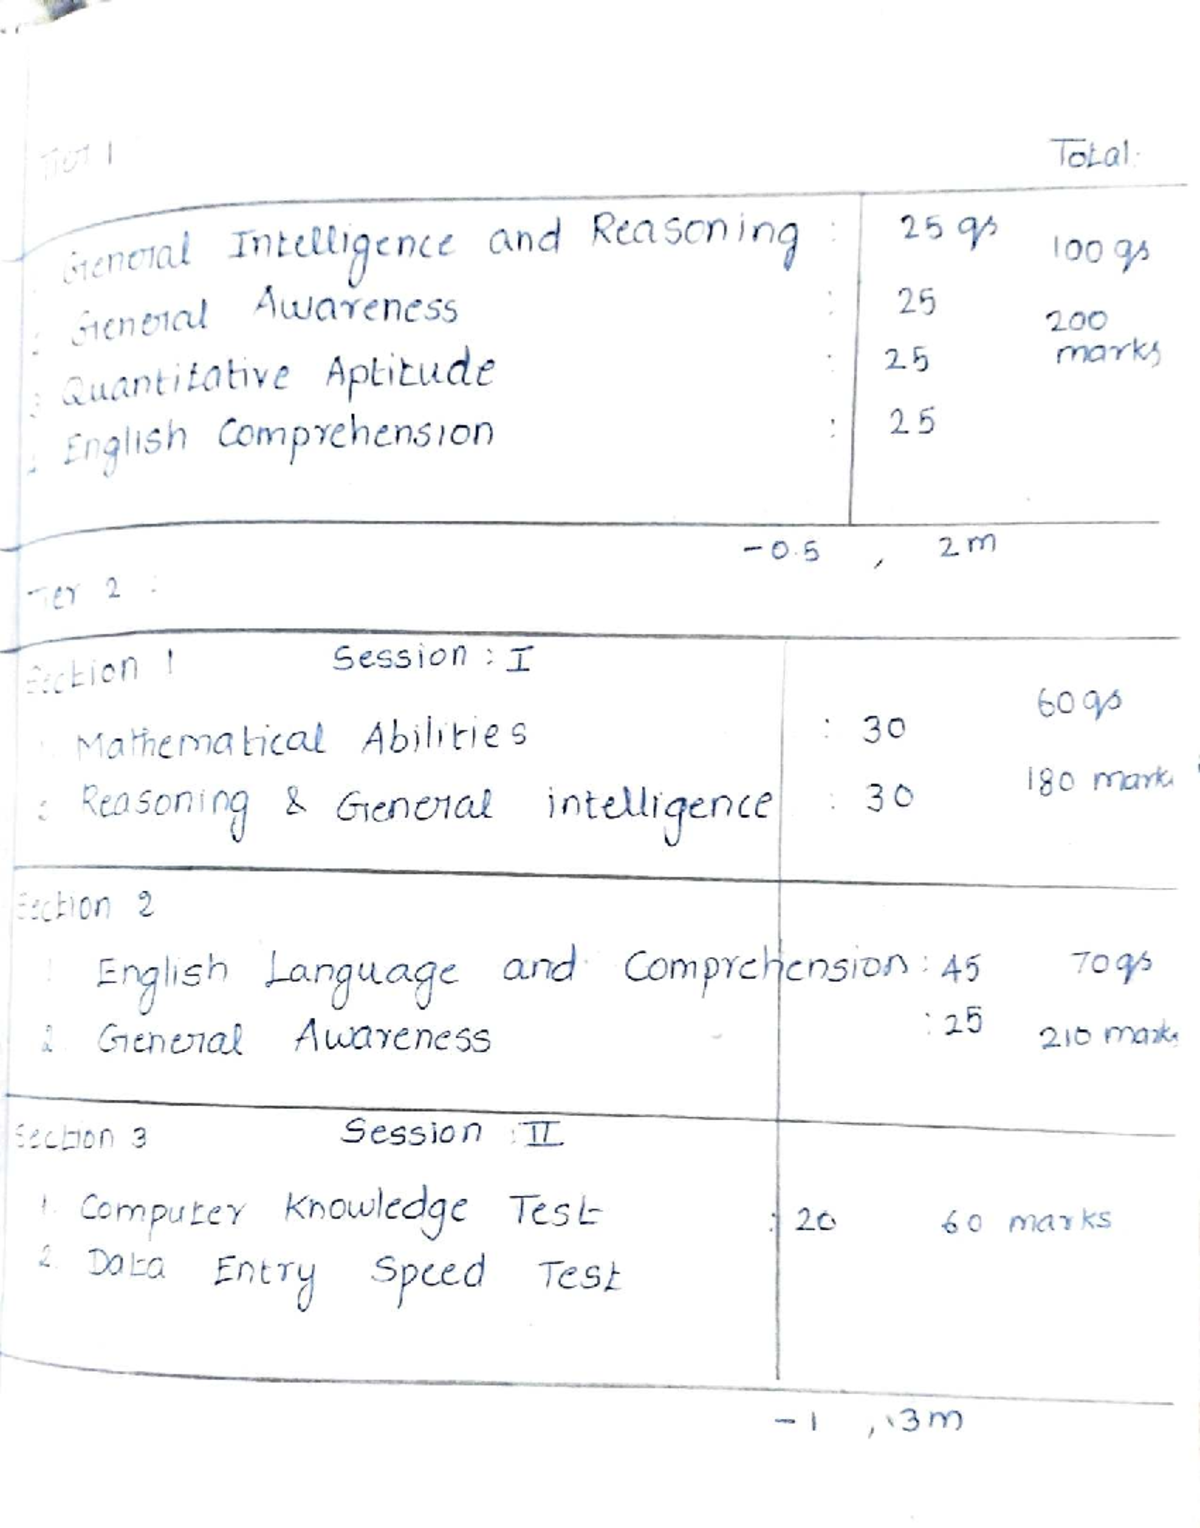 Tier 1 Total:
General Intelligence and Reasoning : 25 qs 100 qs
General Awareness : 25 200
Quantitative Aptitude : 25 marks
English Comprehension : 25
-0.5 , 2m
Tier 2 :
Section 1 Session : I
60 qs
Mathematical Abilities : 30
2 Reasoning & General intelligence : 30 180 mark
Section 2
1 English Language and Comprehension : 45 70 qs
2. General Awareness : 25 210 marks
Section 3 Session : II
1. Computer Knowledge Test : 20 60 marks
2. Data Entry Speed Test
-1 , 3m